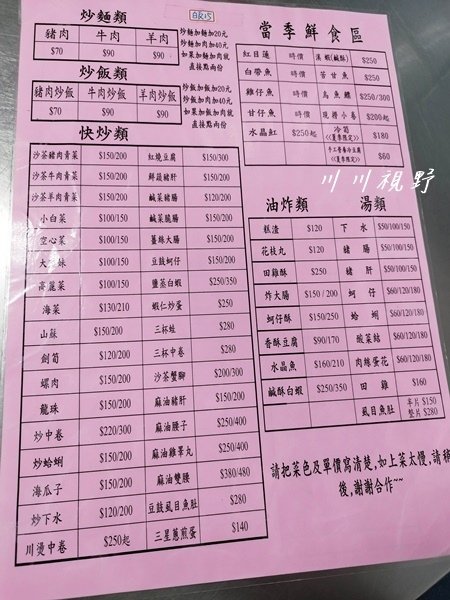 炒麵類
豬肉 牛肉 羊肉
$70 $90 $90
炒麵加麵加20元
炒麵加肉加40元
如果加麵加肉就
直接點兩份
炒飯類
豬肉炒飯 牛肉炒飯 羊肉炒飯
$70 $90 $90
炒飯加飯加20元
炒飯加肉加40元
如果加飯加肉就
直接點兩份
快炒類
沙茶豬肉青菜 $150/200 紅燒豆腐 $150/300
沙茶牛肉青菜 $150/200 鮮蔬豬肝 $150/200
沙茶羊肉青菜 $150/200 鹹菜豬腸 $120/200
小白菜 $100/150 鹹菜脆腸 $150/200
空心菜 $100/150 薑絲大腸 $150/200
大陸妹 $100/150 豆鼓蚵仔 $150/200
高麗菜 $100/150 鹽蒸白蝦 $250/350
海菜 $130/210 蝦仁炒蛋 $250
山蘇 $150/200 三杯蛙 $280
劍筍 $120/200 三杯中卷 $280
螺肉 $150/200 沙茶蟹腳 $200/300
龍珠 $150/200 麻油豬肝 $150/200
炒中卷 $220/300 麻油腰子 $250/400
炒蛤蜊 $150/200 麻油雞睪丸 $250/400
海瓜子 $150/200 麻油雙腰 $380/480
炒下水 $120/200 豆鼓虱目魚肚 $280
川燙中卷 $250起 三星蔥煎蛋 $140
當季鮮食區
紅目蓮 時價 溪蝦(鹹酥) $250
白帶魚 時價 苦甘魚 $250
雞仔魚 時價 烏魚膘 $250/300
甘仔魚 時價 現撈小卷 $200起
水晶魟 $250起 冷筍 <<夏季限定>> $180
手工營養冷豆腐 <<夏季限定>> $60
川川視野
油炸類 湯類
糕渣 $120 下水 $50/100/150
花枝丸 $120 豬腸 $50/100/150
田雞酥 $250 豬肝 $50/100/150
炸大腸 $150/200 蚵仔 $60/120/180
蚵仔酥 $150/250 蛤蜊 $60/120/180
香酥豆腐 $90/170 酸菜結 $60/120/180
水晶魚 $160/210 肉絲蛋花 $60/120/180
鹹酥白蝦 $250/350 田雞 $160
虱目魚肚 半片$150 整片$280
請把菜色及單價寫清楚,如上菜太慢,請稍
後,謝謝合作~~